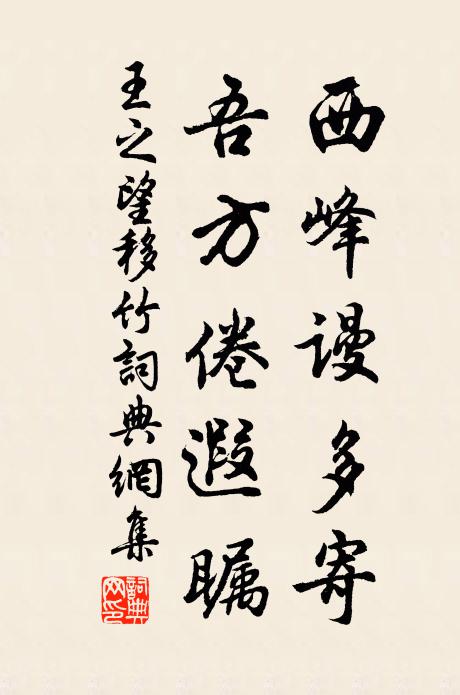 西峰谩多寄
吾方倦遐瞩
王之望移竹詞典網集
詞典网印